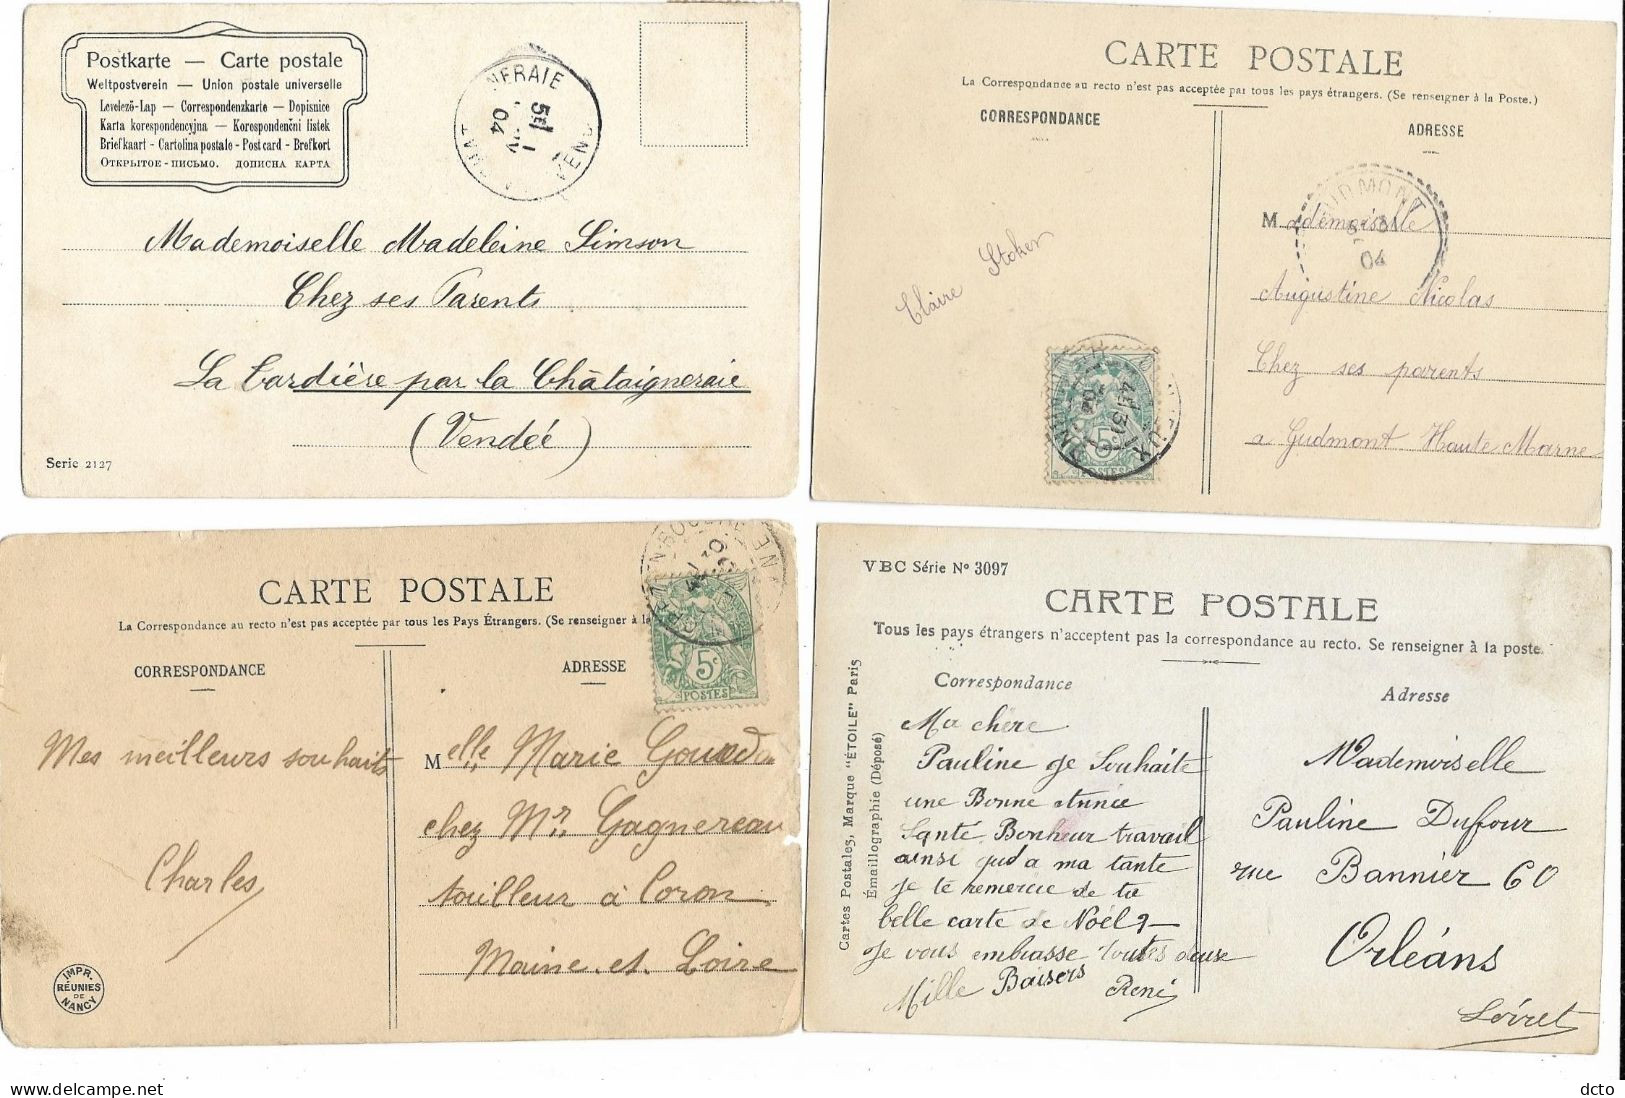 Postkarte — Carte postale
Weltpostverein — Union postale universelle
Levelező-Lap — Correspondenzkarte — Dopisnice
Karta korespondencyjna — Korespondenční listek
Briefkaart - Cartolina postale - Post card - Brefkort
Открытое - письмо. дописна карта
NERAIE
04
Mademoiselle Madeleine Simson
Chez ses Parents
La Tardière par la Châtaigneraie
(Vendée)
Serie 2127
CARTE POSTALE
La Correspondance au recto n'est pas acceptée par tous les pays étrangers. (Se renseigner à la Poste.)
CORRESPONDANCE
ADRESSE
04
Claire Stoker
Mademoiselle
Augustine Nicolas
Chez ses parents
a Gudmont Haute Marne
5c
POSTES
CARTE POSTALE
La Correspondance au recto n'est pas acceptée par tous les Pays Étrangers. (Se renseigner à la
CORRESPONDANCE
ADRESSE
5c
POSTES
Mes meilleurs souhaits
Charles
Melle Marie
chez Mr Gagnereau
à Coron
Maine-et-Loire
IMPR.
RÉUNIES
DE
NANCY
VBC Série N° 3097
CARTE POSTALE
Tous les pays étrangers n'acceptent pas la correspondance au recto. Se renseigner à la poste.
Correspondance
Adresse
Cartes Postales, Marque "ÉTOILE" Paris
Émaillographie (Déposé)
Ma chère
Pauline je Souhaite
une Bonne Année
Santé Bonheur travail
ainsi qu'a ma tante
je te remercie de ta
belle carte de Noël
Je vous embrasse toutes deux
Mille Baisers
René
Mademoiselle
Pauline Duffour
rue Bannier 60
Orléans
Loiret
dcto